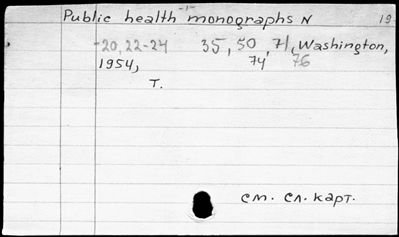 Public health monographs N 19
-20,22-24 35, 50, 71, Washington,
1954, 74 76
T.
см. сл. карт.